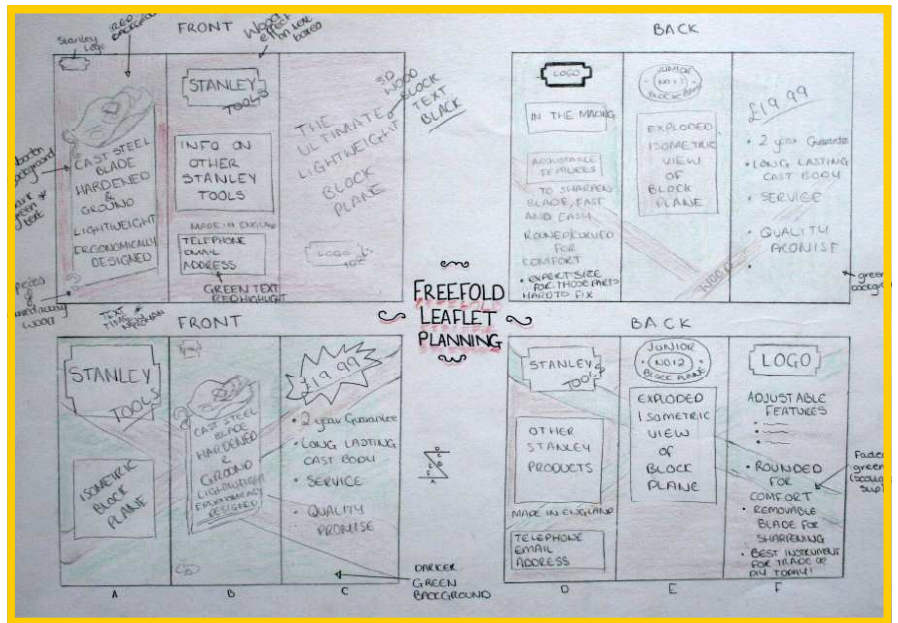 FRONT
Stanley
Logo
RED
BACKGROUND
Wood
effect
on
boxes
STANLEY
TOOLS
CAST STEEL
BLADE
HARDENED
&
GROUND
LIGHTWEIGHT
ERGONOMICALLY
DESIGNED
INFO ON
OTHER
STANLEY
TOOLS
MADE IN ENGLAND
TELEPHONE
EMAIL
ADDRESS
GREEN TEXT
RED HIGHLIGHT
THE
ULTIMATE
LIGHTWEIGHT
BLOCK
PLANE
3D
WOOD
BLOCK
TEXT
BLACK
LOGO
TOOL
background
green
text
wood
TEXT
BACK
LOGO
IN THE MAKING
ADJUSTABLE
FEATURES
TO SHARPEN
BLADE, FAST
AND EASY
ROUNED/CURVED
FOR
COMFORT
• EXPERT SIZE
FOR THOSE PARTS
HARD TO FIX
JUNIOR
NO12
BLOCK PLANE
EXPLODED
ISOMETRIC
VIEW
OF
BLOCK
PLANE
£19.99
• 2 year Guarantee
• LONG LASTING
CAST BODY
• SERVICE
• QUALITY
•
WOOD
green
FREEFOLD
LEAFLET
PLANNING
FRONT
STANLEY
TOOLS
ISOMETRIC
BLOCK
PLANE
CAST STEEL
BLADE
HARDENED
&
GROUND
LIGHTWEIGHT
ERGONOMICALLY
DESIGNED
£19.99
• 2 year Guarantee
• LONG LASTING
CAST BODY
• SERVICE
• QUALITY
PROMISE
A
B
C
DARKER
GREEN
BACKGROUND
BACK
STANLEY
TOOL
OTHER
STANLEY
PRODUCTS
MADE IN ENGLAND
TELEPHONE
EMAIL
ADDRESS
JUNIOR
NO12
BLOCK PLANE
EXPLODED
ISOMETRIC
VIEW
OF
BLOCK
PLANE
LOGO
ADJUSTABLE
FEATURES
• ROUNDED
FOR
COMFORT
• REMOVABLE
BLADE FOR
SHARPENING
• BEST INSTRUMENT
FOR TRADE OR
DIY TODAY!
green
D
E
F